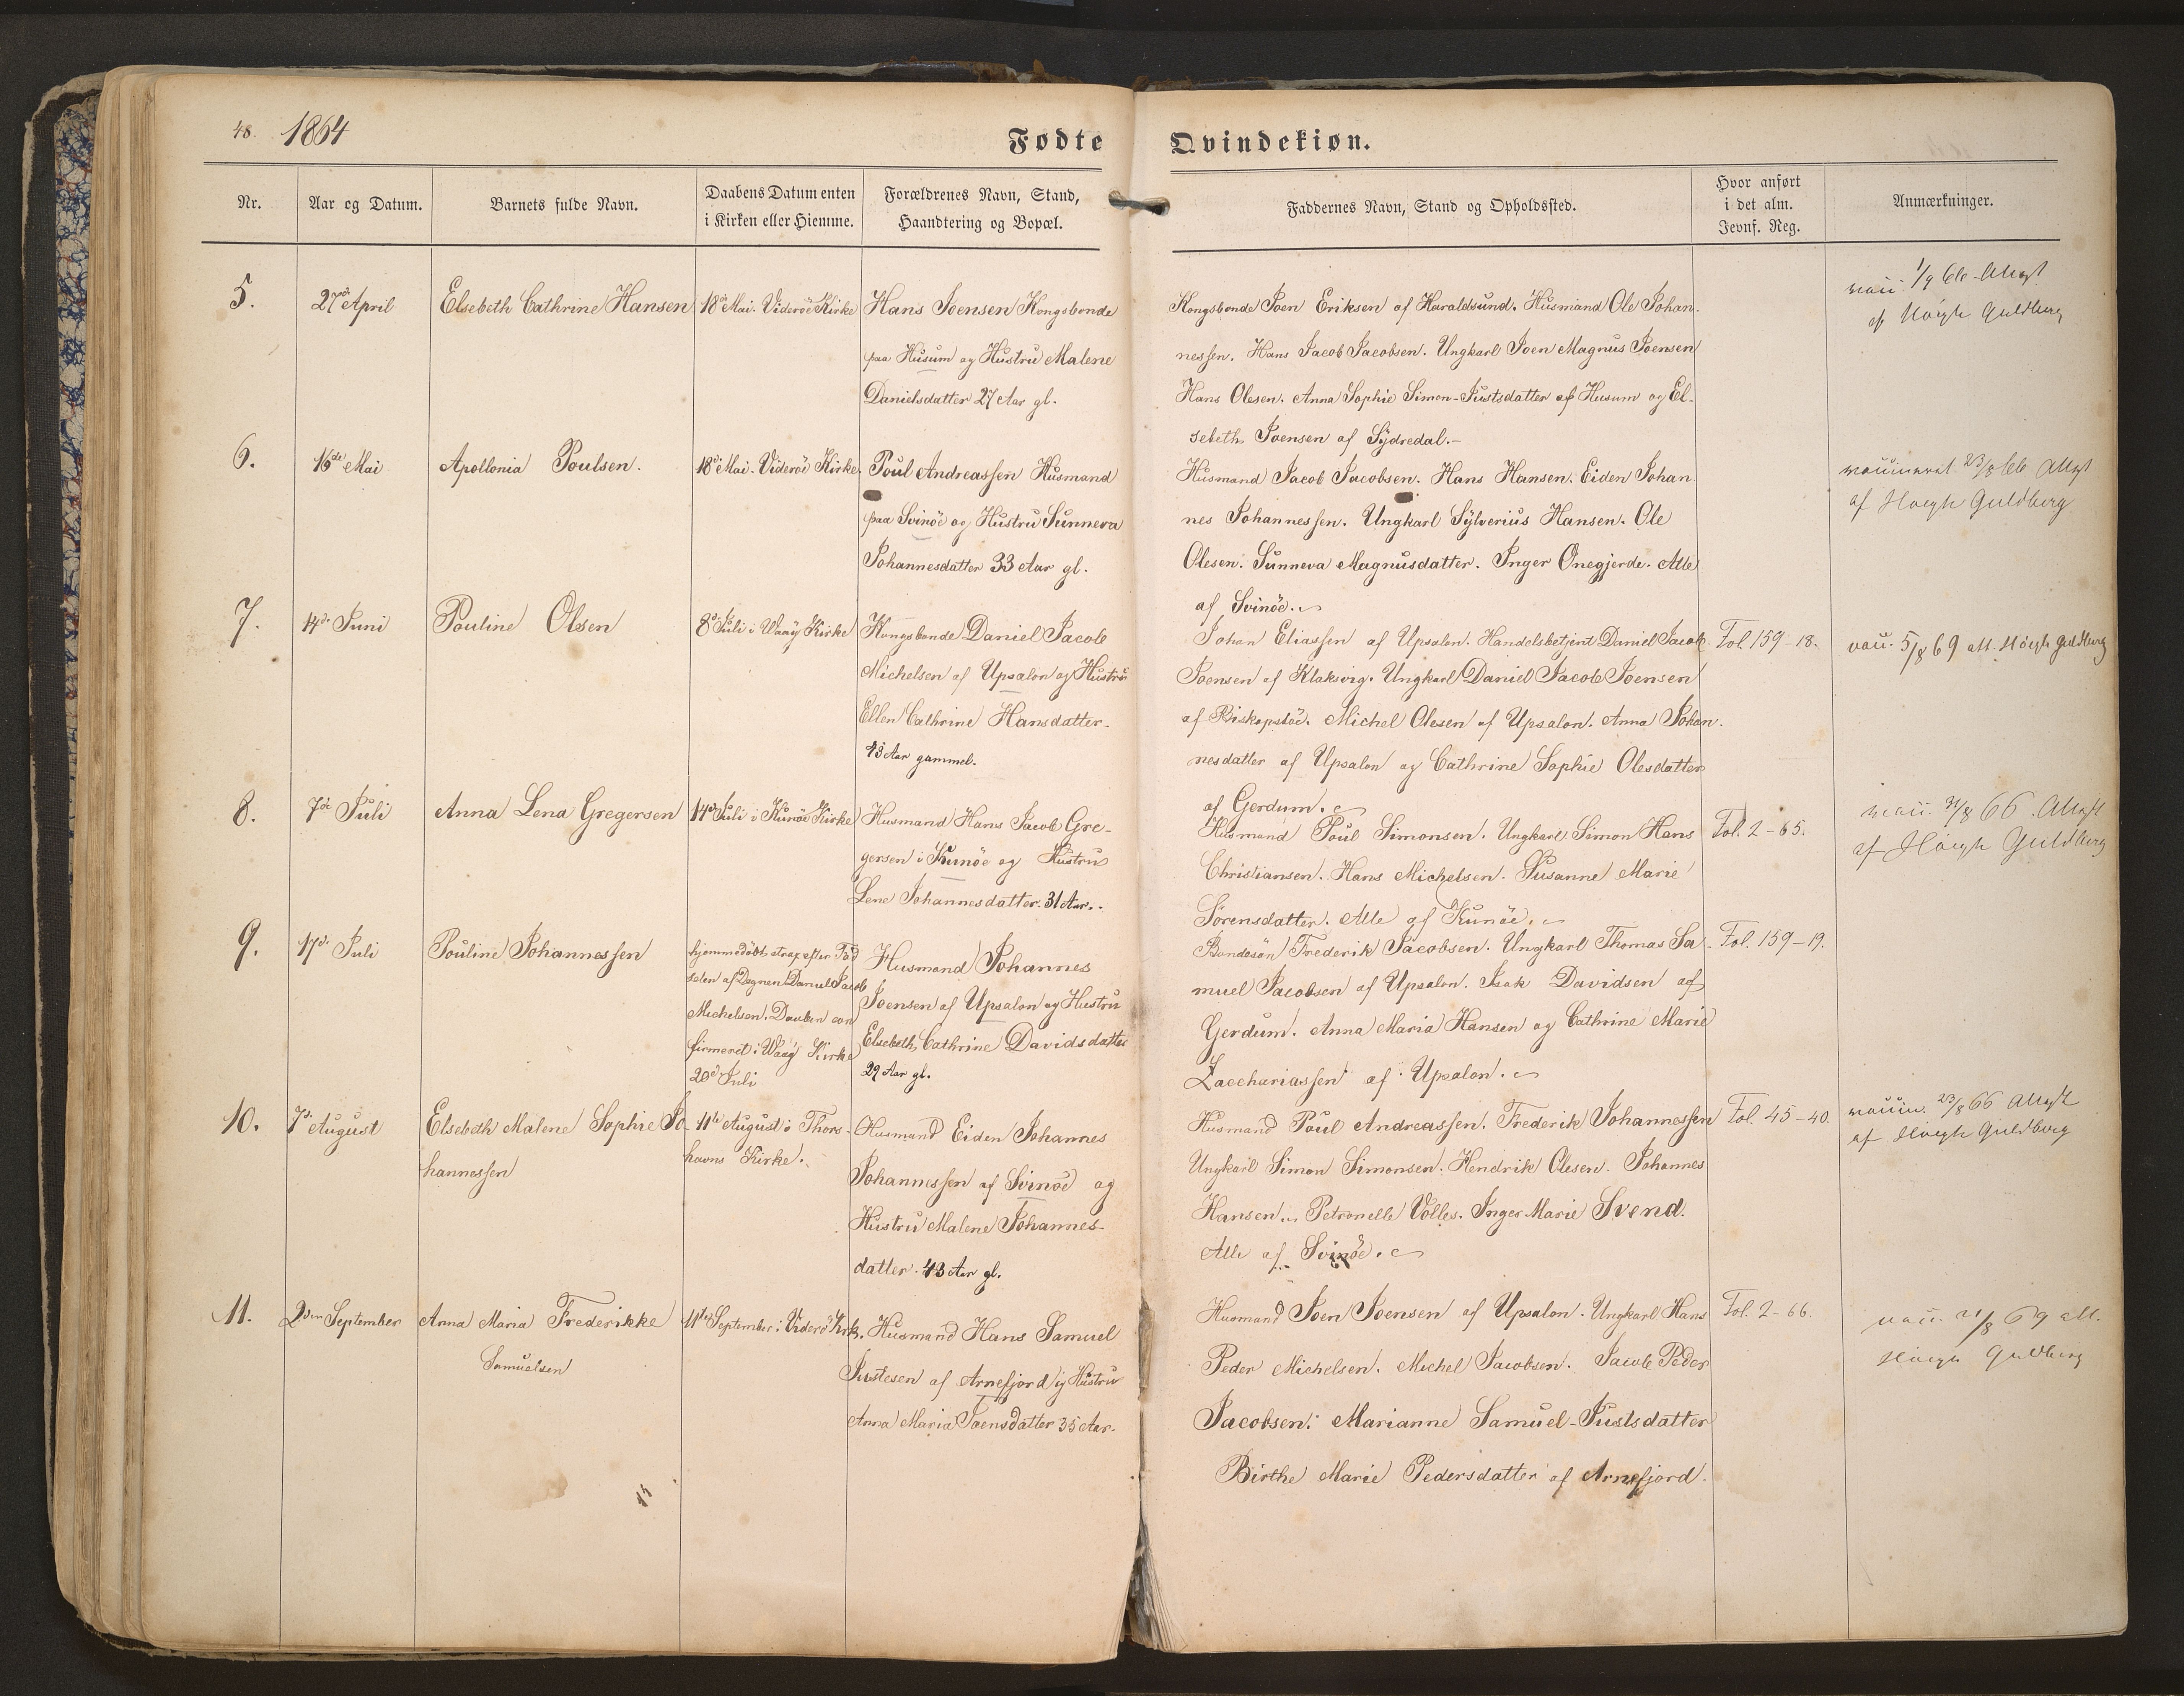 48. 1864
Fødte Qvindekiøn.
Nr.
Aar og Datum.
Barnets fulde Navn.
Daabens Datum enten
i Kirken eller Hiemme.
Forældrenes Navn, Stand,
Haandtering og Bopæl.
Faddernes Navn, Stand og Opholdssted.
Hvor anført
i det alm.
Jevnf. Reg.
Anmærkninger.
5.
27de April
Elsebeth Cathrine Hansen
18de Mai. Viderøe Kirke
Hans Joensen Kongsbonde
paa Husum og Hustru Malene
Danielsdatter 27 Aar gl.
Kongsbonde Joen Eriksen af Haraldsund. Husmand Ole Johan-
nessen. Hans Jacob Jacobsen. Ungkarl Joen Magnus Joensen
Hans Olesen. Anna Sophie Simon-Justsdatter af Husum og El-
sebeth Joensen af Sydredal.-
vacc. 1/9 66 Attest
af Høegh Guldberg
6.
16de Mai
Apollonia Poulsen.
18de Mai. Viderøe Kirke
Poul Andreassen Husmand
paa Svinöe og Hustru Sunneva
Johannesdatter 33 Aar gl.
Husmand Jacob Jacobsen. Hans Hansen. Eiden Johan
nes Johannessen. Ungkarl Sylverius Hansen. Ole
Olesen. Sunneva Magnusdatter. Inger Onegjerde. Alle
af Svinöe.
vaccineret 23/8 66 Attest
af Høegh Guldberg
7.
14de Juni
Pouline Olsen
8de Juli i Waaÿ Kirke
Kongsbonde Daniel Jacob
Michelsen af Upsalon og Hustru
Ellen Cathrine Hansdatter
43 Aar gammel.
Johan Eliassen af Upsalon. Handelsbetjent Daniel Jacob
Joensen af Klaksvig. Ungkarl Daniel Jacob Joensen
af Biskopstöe. Michel Olesen af Upsalon. Anna Johan-
nesdatter af Upsalon og Cathrine Sophie Olesdatter
af Gerdum.
Fol. 159-18.
vacc. 5/8 69 att. Høegh Guldberg
8.
7de Juli
Anna Lena Gregersen
14de Juli i Kunöe Kirke
Husmand Hans Jacob Gre-
gersen i Kunöe og Hustru
Lene Johannesdatter. 31 Aar.
Husmand Poul Simonsen. Ungkarl Simon Hans
Christiansen. Hans Michelsen. Susanne Marie
Sörensdatter. Alle af Kunöe.
Fol. 2-65.
vacc. 31/8 66. Attest
af Høegh Guldberg
9.
17de Juli
Pouline Johannessen
hjemmedöbt strax efter Föd
selen af Degnen Daniel Jacob
Michelsen. Daaben con
firmeret i Waaÿ Kirke
20de Juli
Husmand Johannes
Joensen af Upsalon og Hustru
Elsebeth Cathrine Davidsdatter
29 Aar gl.
Bondesön Frederik Jacobsen. Ungkarl Thomas Sa-
muel Jacobsen af Upsalon. Isak Davidsen af
Gerdum. Anna Maria Hansen og Cathrine Marie
Zacchariassen af Upsalon.
Fol. 159-19.
10.
7de August
Elsebeth Malene Sophie Jo-
hannessen
11te August i Thors-
havns Kirke.
Husmand Eiden Johannes
Johannessen af Svinöe og
Hustru Malene Johannes-
datter. 43 Aar gl.
Husmand Poul Andreassen. Frederik Johannessen
Ungkarl Simon Simonsen. Hendrik Olesen. Johannes
Hansen. Petronelle Völles. Inger Marie Svend.
Alle af Svinöe.
Fol. 45-40.
vaccin. 23/8 66 Attest
af Høegh Guldberg
11.
2den September
Anna Maria Frederikke
Samuelsen
11te September i Viderö Kirk.
Husmand Hans Samuel
Justesen af Arnefjord og Hustru
Anna Maria Joensdatter 35 Aar.
Husmand Joen Joensen af Upsalon. Ungkarl Hans
Peder Michelsen. Michel Jacobsen. Jacob Peder
Jacobsen. Marianne Samuel-Justsdatter
Birthe Marie Pedersdatter af Arnefjord.
Fol. 2-66.
vacc. 21/8 69 att.
Høegh Guldberg